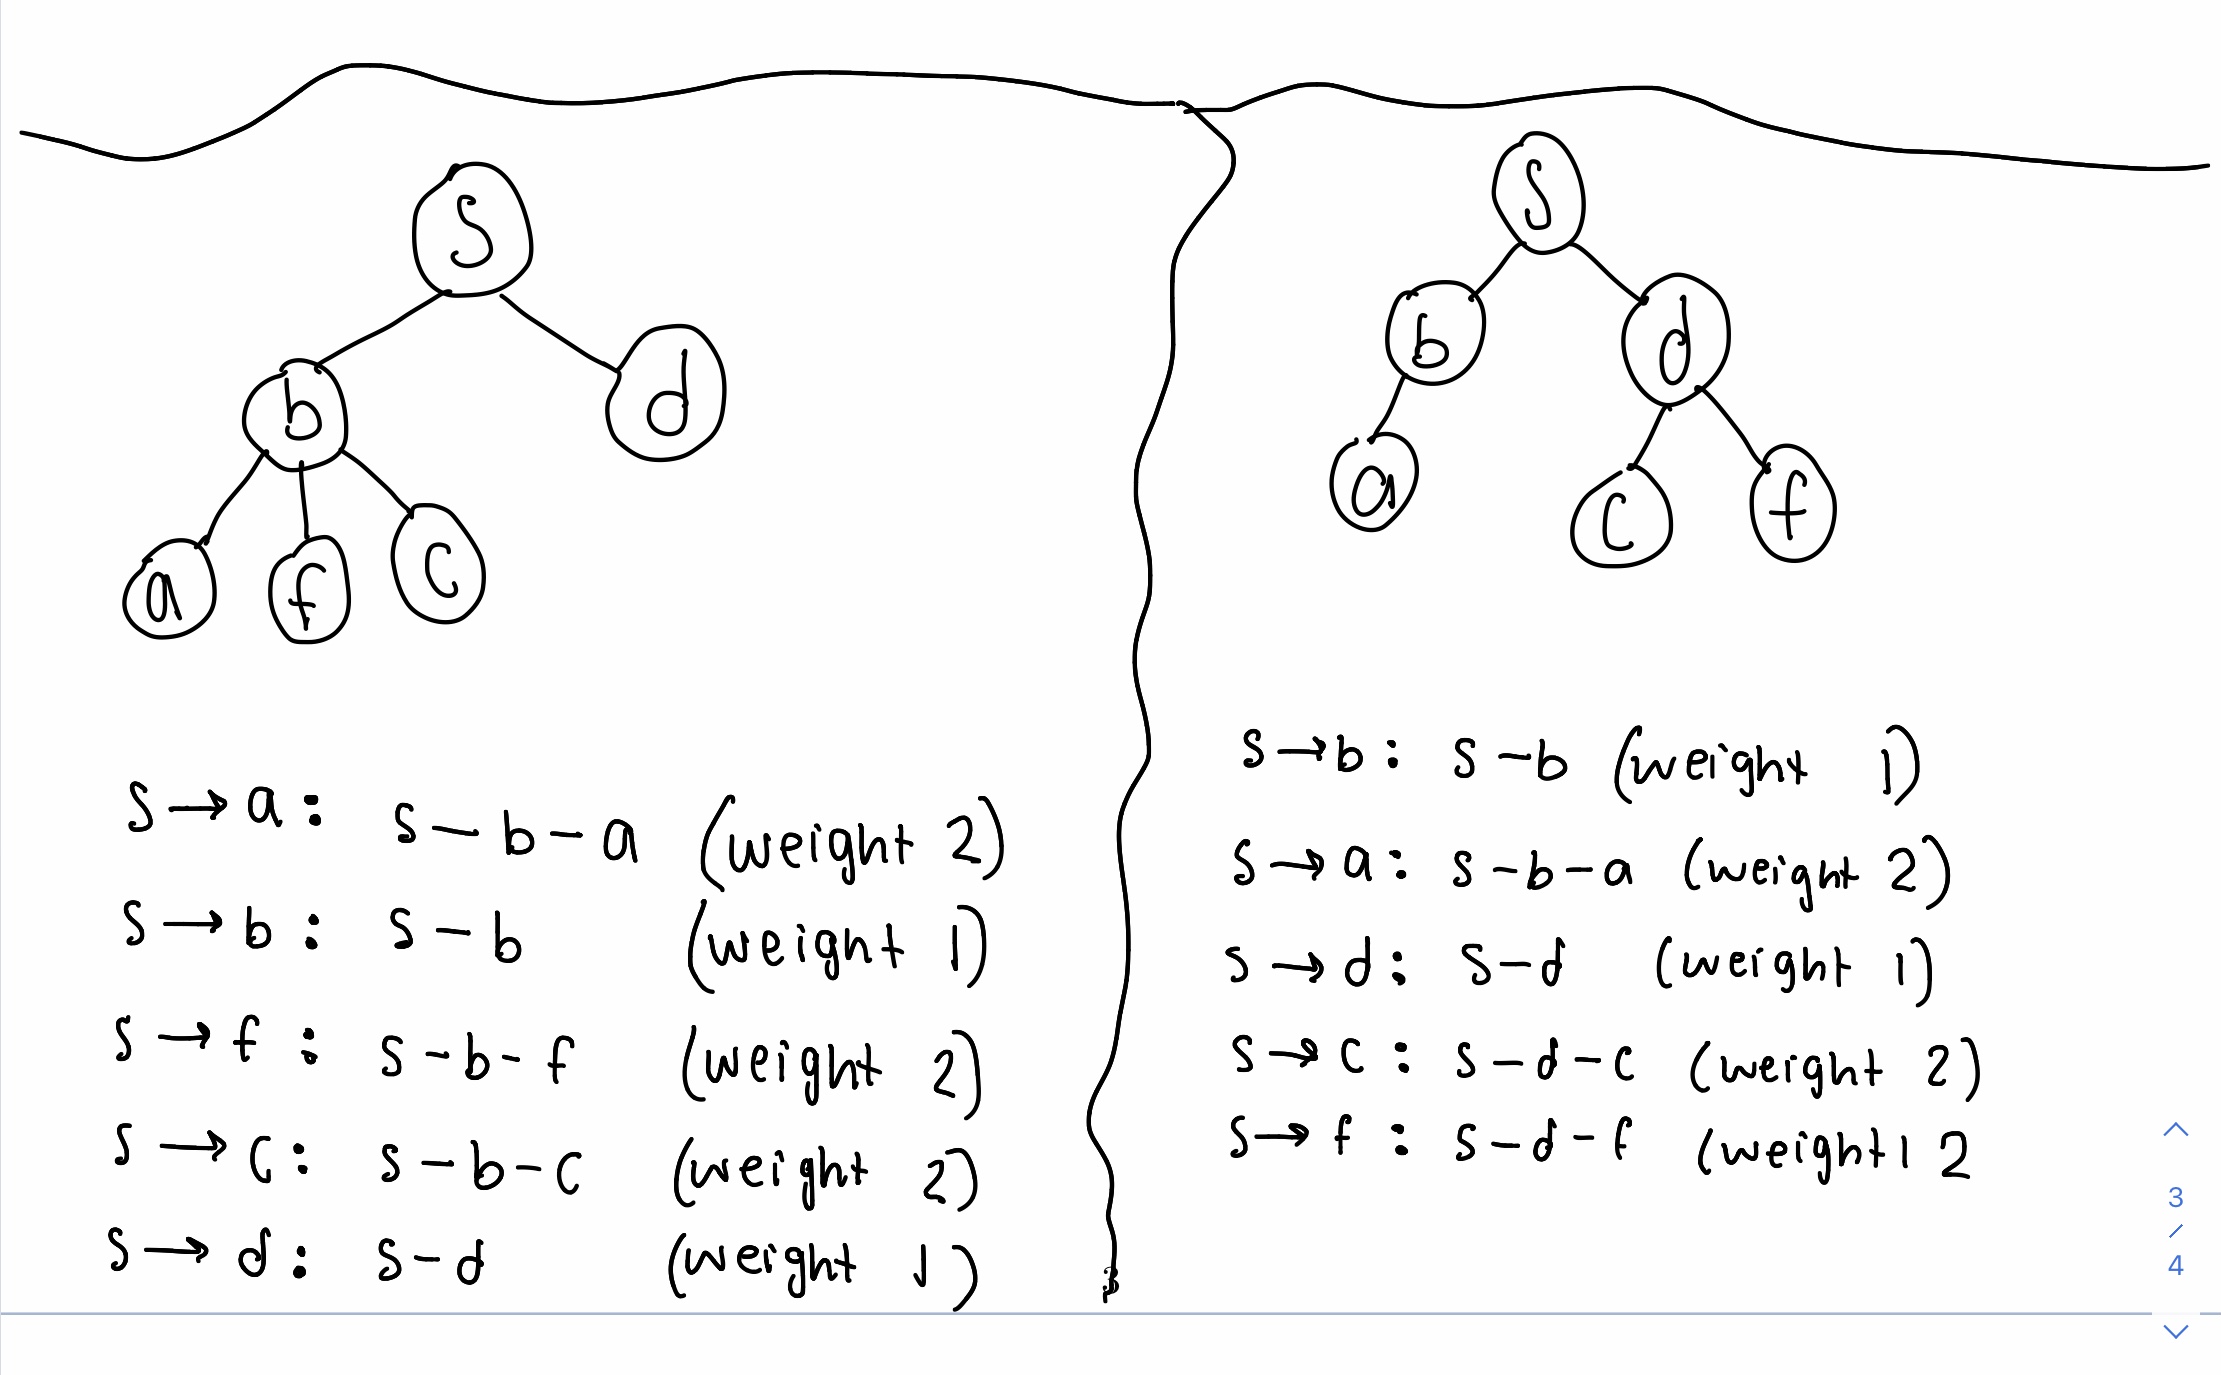 S
b
d
a
f
c
s → a : s - b - a (weight 2)
s → b : s - b (weight 1)
s → f : s - b - f (weight 2)
s → c : s - b - c (weight 2)
s → d : s - d (weight 1)
S
b
d
a
c
f
s → b : s - b (weight 1)
s → a : s - b - a (weight 2)
s → d : s - d (weight 1)
s → c : s - d - c (weight 2)
s → f : s - d - f (weight 1 2
3
/
4